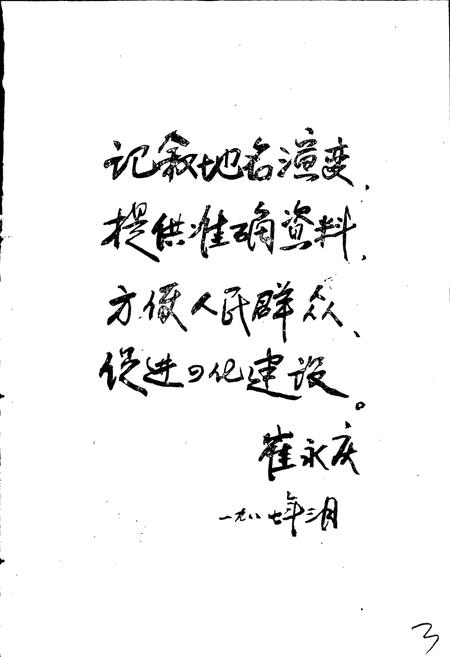 记叙地名演变,
提供准确资料,
方便人民群众、
促进四化建设。
崔永庆
一九八七年三月
3